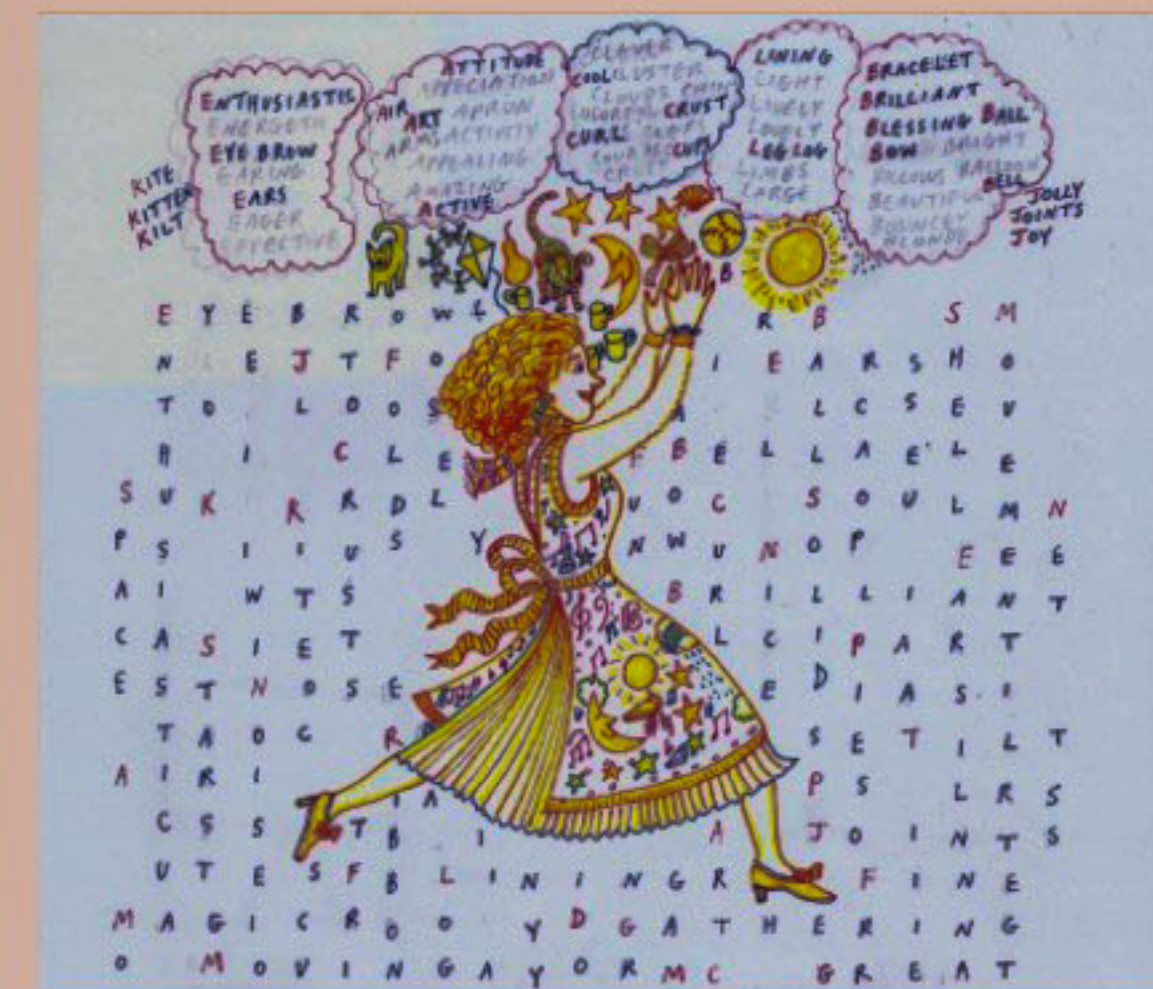 ENTHUSIASTIC
ENERGETIC
EYE BROW
EARING
EARS
EAGER
EFFECTIVE
KITE
KITTEN
KILT
ATTITUDE
AIR
ART APRON
ARMS ACTIVITY
APPEALING
AMAZING
ACTIVE
CLEVER
COOL CLUSTER
CRUST
CURL
CUPS
LINING
LIGHT
LIVELY
LOVELY
LEG LOG
LIMBS
LARGE
BRACELET
BRILLIANT
BLESSING BALL
BOW BRIGHT
BALLOON
BELL
BEAUTIFUL
BOUNCEY
BLONDE
JOLLY
JOINTS
JOY
B
E Y E B R O W L R B S M
N L E J T F O I E A R S H O
T O L O O S A L C S E V
H I C L E F B E L L A E L E
S U K R R D L U O C S O U L M N
P S I I U S Y N W U N O P E E E
A I W T S B R I L L I A N T
C A S I E T L C I P A R T
E S T N O S E E D I A S I
T A O G R S E T I L T
A I R I I A P S L R S
C S S T B I A J O I N T S
U T E S F B L I N I N G R F I N E
M A G I C R O O Y D G A T H E R I N G
O M O V I N G A Y O R M C G R E A T